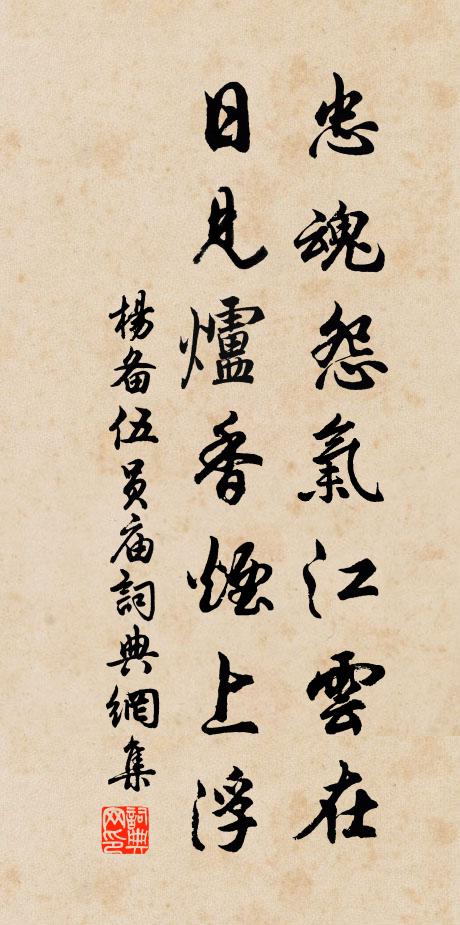 忠魂怨氣江雲在
日見爐香煙上浮
楊备伍員庙詞典網集
詞典网印